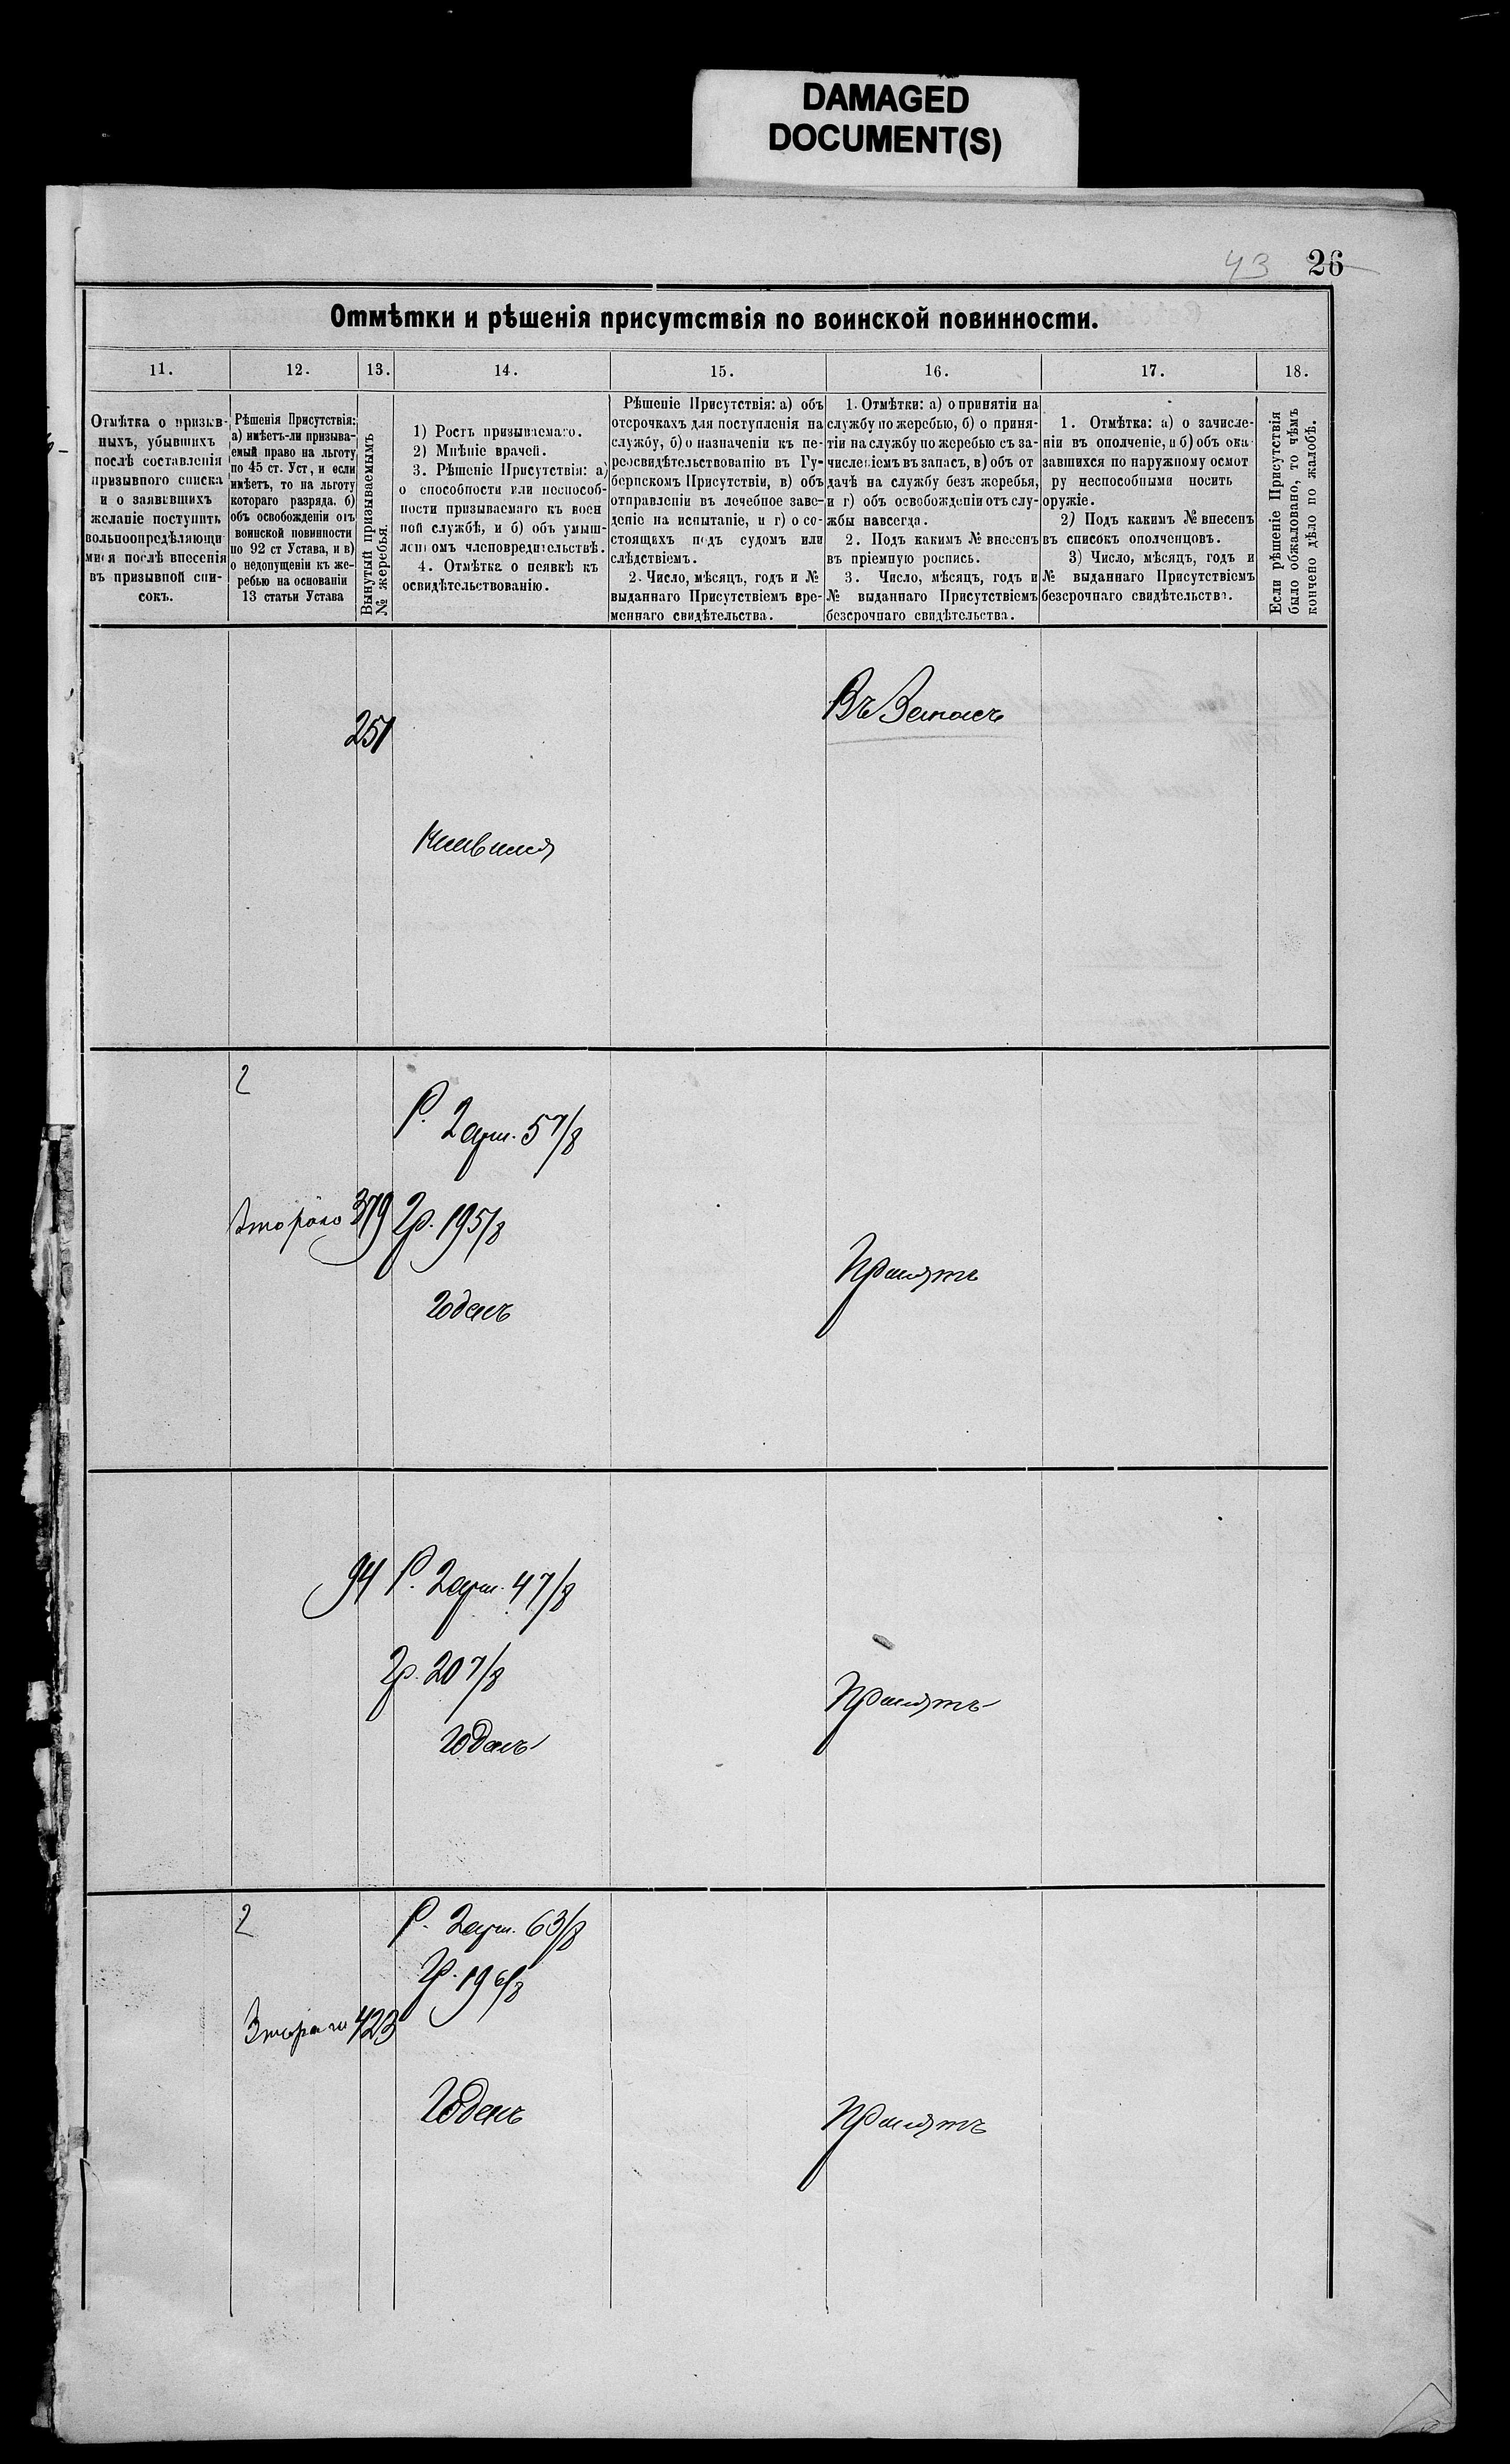 DAMAGED
DOCUMENT(S)
43 26
Отмѣтки и рѣшенія присутствія по воинской повинности.
11. 12. 13. 14. 15. 16. 17. 18.
Отмѣтка о призыв-
ныхъ, убывшихъ
послѣ составленія
призывного списка
и о заявившихъ
желаніе поступить
вольноопредѣляющи
мися послѣ внесенія
въ призывной спи-
сокъ.
Рѣшенія Присутствія:
а) имѣетъ-ли призыва-
емый право на льготу
по 45 ст. Уст, и если
имѣетъ, то на льготу
котораго разряда. б)
объ освобожденіи отъ
воинской повинности
по 92 ст Устава, и в)
о недопущеніи къ же-
ребью на основаніи
13 статьи Устава
Вынутый призываемымъ
№ жеребья.
1) Ростъ призываемаго.
2) Мнѣніе врачей.
3. Рѣшеніе Присутствія: а)
о способности или неспособ-
ности призываемаго къ воен
ной службѣ, и б) объ умыш-
леномъ членовредительствѣ.
4. Отмѣтка о неявкѣ къ
освидѣтельствованію.
Рѣшеніе Присутствія: а) объ
отсрочкахъ для поступленія на
службу, б) о назначеніи къ пе-
реосвидѣтельствованію въ Гу-
бернскомъ Присутствіи, в) объ
отправленіи въ лечебное заве-
деніе на испытаніе, и г) о со-
стоящихъ подъ судомъ или
слѣдствіемъ.
2. Число, мѣсяцъ, годъ и №
выданнаго Присутствіемъ вре-
меннаго свидѣтельства.
1. Отмѣтки: а) о принятіи на
службу по жеребью, б) о приня-
тіи на службу по жеребью съ за-
численіемъ въ запасъ, в) объ от
дачѣ на службу безъ жеребья,
и г) объ освобожденіи отъ слу-
жбы навсегда.
2. Подъ какимъ № внесенъ
въ пріемную роспись.
3. Число, мѣсяцъ, годъ и
№ выданнаго Присутствіемъ
безсрочнаго свидѣтельства.
1. Отмѣтка: а) о зачисле-
ніи въ ополченіе, и б) объ ока
завшихся по наружному осмот
ру неспособными носить
оружіе.
2) Подъ какимъ № внесенъ
въ списокъ ополченцовъ.
3) Число, мѣсяцъ, годъ и
№ выданнаго Присутствіемъ
безсрочнаго свидѣтельства.
Если рѣшеніе Присутствія
было обжаловано, то чѣмъ
кончено дѣло по жалобѣ.
251
Въ Запасъ
2
Р. 2 арш. 5 7/8
Второго 379 Гр. 19 5/8
Годенъ
Принятъ
94 Р. 2 арш. 4 7/8
Гр. 20 7/8
Годенъ
Принятъ
2
Р. 2 арш. 6 3/8
Гр. 19 6/8
Второго 423
Годенъ
Принятъ